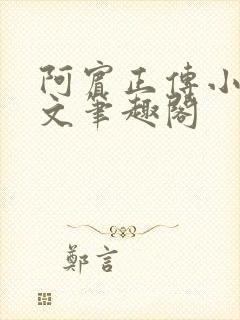 阿賓正傳小
文筆趣閣
鄭言